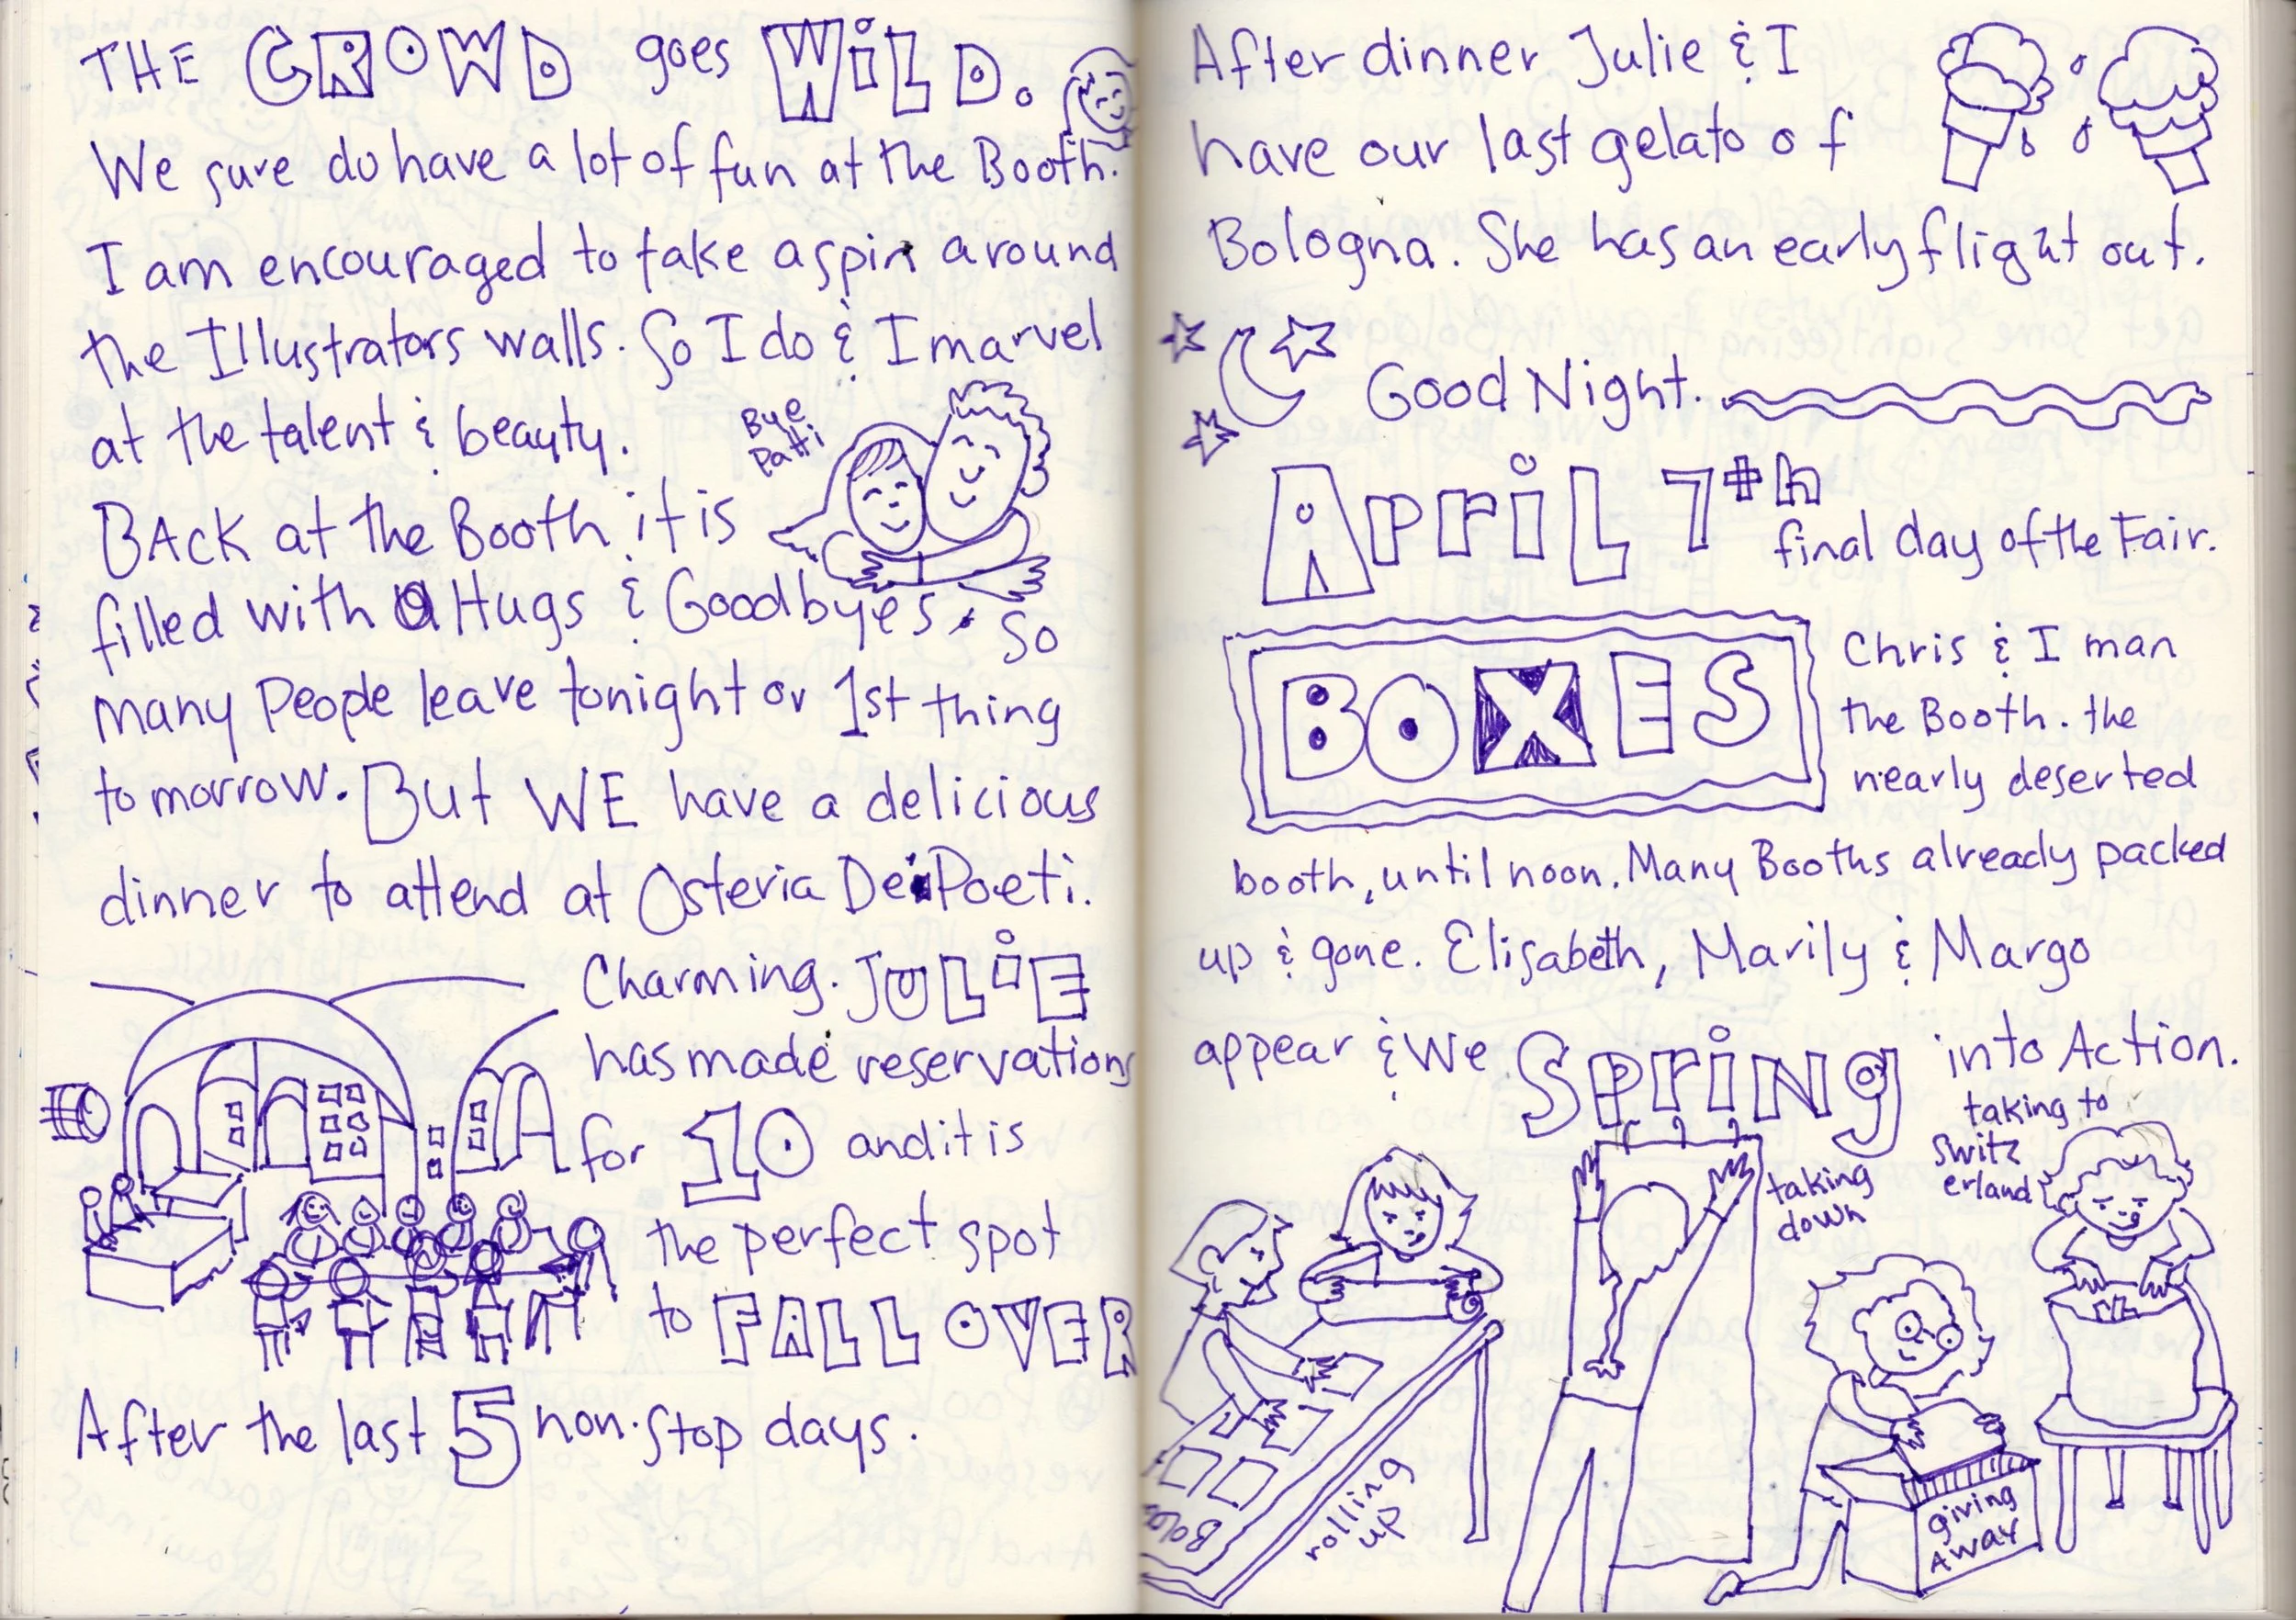 THE CROWD goes WiLD.
We sure do have a lot of fun at the Booth.
I am encouraged to take a spin around
the Illustrators walls. So I do & I marvel
at the talent & beauty.
Bye
Patti
BACK at the Booth it is
filled with Hugs & Goodbyes. So
many People leave tonight or 1st thing
tomorrow. But WE have a delicious
dinner to attend at Osteria Dei Poeti.
Charming. JULiE
has made reservations
for 10 and it is
the perfect spot
to FALL OVER
After the last 5 non-stop days.
After dinner Julie & I
have our last gelato of
Bologna. She has an early flight out.
Good Night.
ApriL 7th
final day of the Fair.
BOXES
Chris & I man
the Booth. the
nearly deserted
booth, until noon. Many Booths already packed
up & gone. Elisabeth, Marily & Margo
appear & We SpriNg into Action.
taking to
Switz
erland
taking
down
rolling
up
giving
AWAY